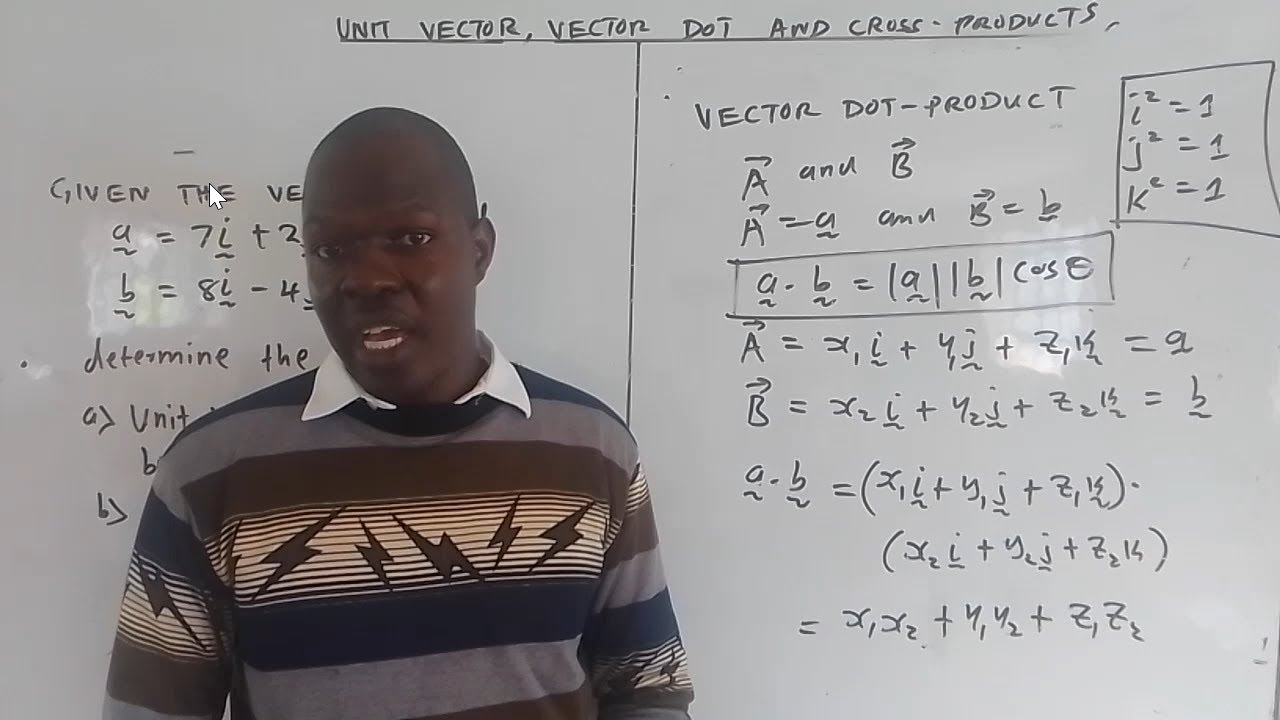 UNIT VECTOR, VECTOR DOT AND CROSS-PRODUCTS,
GIVEN THE VE
a = 7i + 2
b = 8i - 4
determine the
a) Unit
b
b)
VECTOR DOT-PRODUCT
A⃗ and B⃗
A⃗ = a and B⃗ = b
a . b = |a||b| cos θ
A⃗ = x₁i + y₁j + z₁k = a
B⃗ = x₂i + y₂j + z₂k = b
a . b = (x₁i + y₁j + z₁k).
(x₂i + y₂j + z₂k)
= x₁x₂ + y₁y₂ + z₁z₂
i² = 1
j² = 1
k² = 1